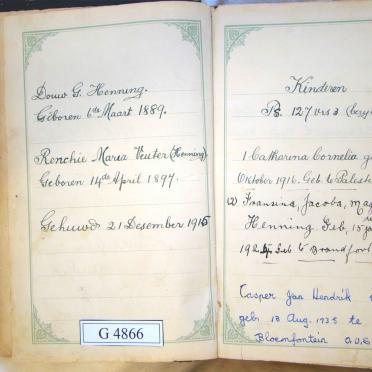 Douw G. Henning.
Geboren 6de Maart 1889.
Renchie Maria Venter (Henning)
Geboren 14de April 1897.
Gehuwd 21 Desember 1915
G 4866
Kinderen
Ps. 127 vrs 3
1 Catharina Cornelia
Oktober 1916. Geb te
(2) Fransina, Jacoba,
Henning. Geb, 15
Geb te Brandfort
Casper Jan Hendrik
geb. 18 Aug. 1935 te
Bloemfontein O.V.S